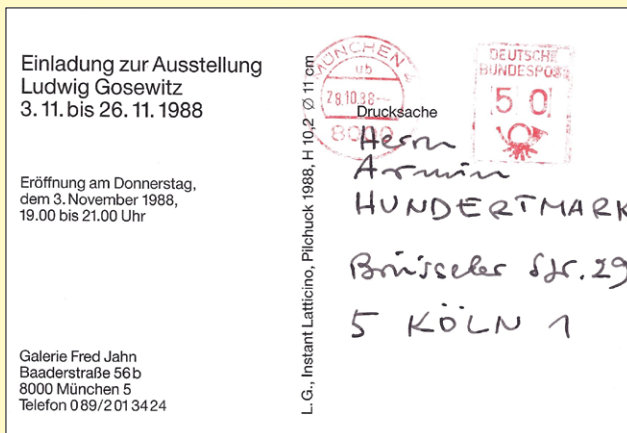 Einladung zur Ausstellung
Ludwig Gosewitz
3. 11. bis 26. 11. 1988
Eröffnung am Donnerstag,
dem 3. November 1988,
19.00 bis 21.00 Uhr
Galerie Fred Jahn
Baaderstraße 56 b
8000 München 5
Telefon 0 89 / 2 01 34 24
L. G., Instant Latticino, Pilchuck 1988, H 10,2 Ø 11 cm
MÜNCHEN
ub
28.10.88
8000
DEUTSCHE
BUNDESPOST
50
Drucksache
Herrn
Armin
HUNDERTMARK
Brüsseler Str. 29
5 KÖLN 1